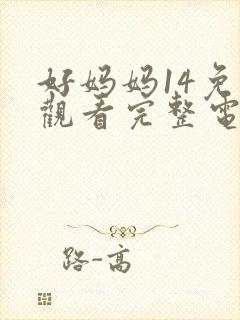 好妈妈14免
觀看完整電
路-高